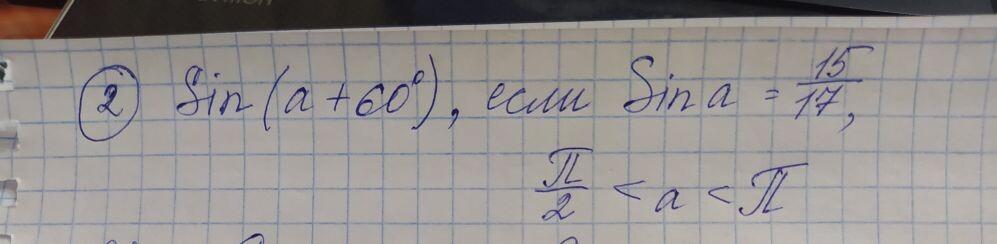 ② Sin(a + 60°), если Sin a = 15/17,
π/2 < a < π